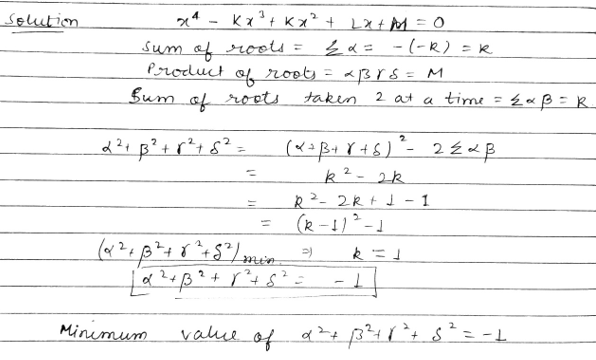 Solution x⁴ - Kx³ + Kx² + Lx + M = 0
Sum of roots = Σα = -(-k) = k
Product of roots = αβγδ = M
Sum of roots taken 2 at a time = Σαβ = k
α² + β² + γ² + δ² = (α+β+γ+δ)² - 2Σαβ
= k² - 2k
= k² - 2k + 1 - 1
= (k-1)² - 1
(α² + β² + γ² + δ²)min. ⇒ k = 1
α² + β² + γ² + δ² = -1
Minimum value of α² + β² + γ² + δ² = -1